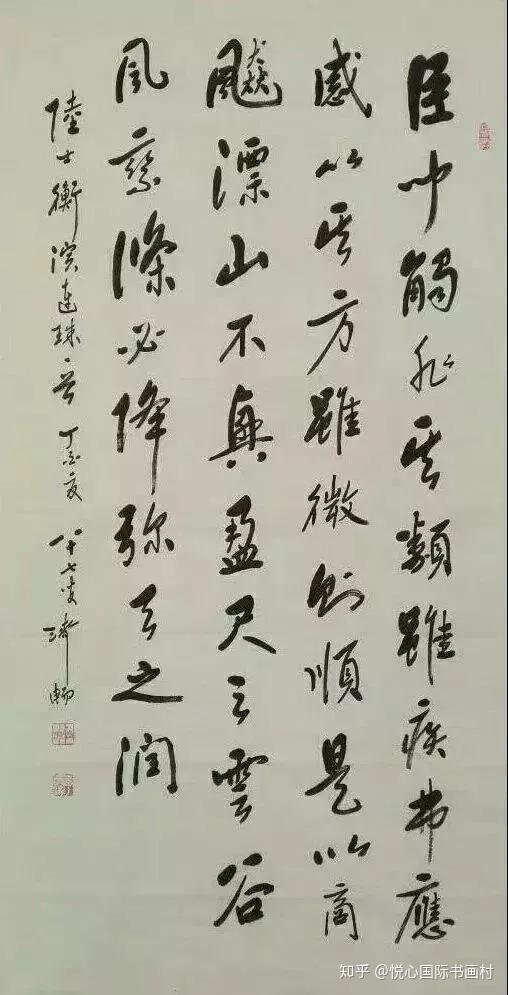 臣聞觸非其類雖疾弗應
感以其方雖微則順是以商
飈漂山不興盈尺之雲谷
風乘條必降弥天之潤
陸士衡演連珠一首 丁亥夏 八十七叟
知乎 @悦心国际书画村